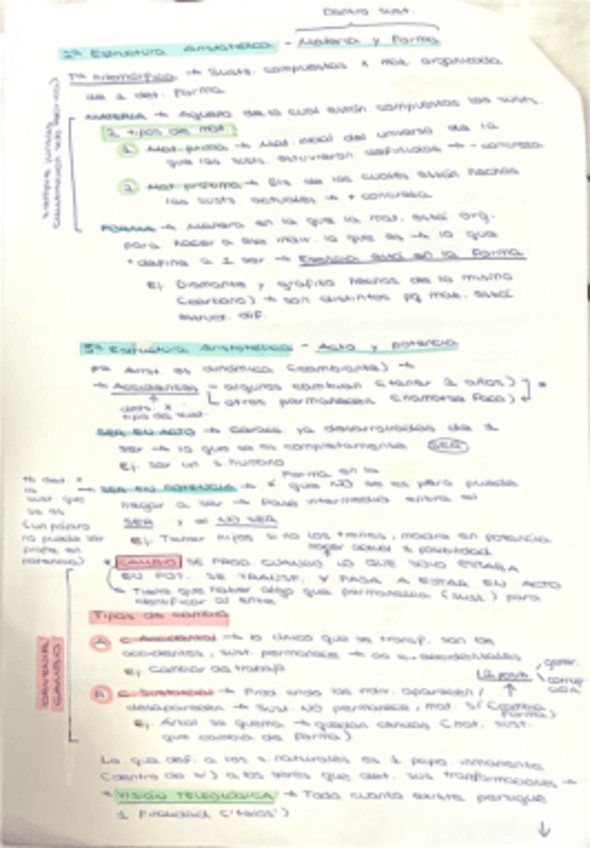 Dentro sust.
2ª Estructura Aristotélica - Materia y Forma
Tª hilemórfica → Susts. compuestas x mat. organizada
de 1 det. forma
MATERIA → Aquello de lo cual están compuestas las susts.
2 tipos de mat.
1 Mat. prima → Mat. inicial del universo de la
que las susts. estuvieron definidas → - concreta
2 Mat. próxima → Ets. de los cuales están hechas
las susts. actuales → + concreta
FORMA → Manera en la que la mat. está org.
para hacer a ese indiv. lo que es → lo que
define a 1 ser → Esencia está en la Forma
Ej. Diamante y grafito hechos de lo mismo
(carbono) → son distintos pq mat. está
estruct. dif.
3ª Estructura Aristotélica - Acto y potencia
pa Arist. es dinámica (cambiante) →
→ Accidentes - algunos cambian (tener 2 años)
otros permanecen (llamarse Paco)
dets. x
tipo de sust.
SER EN ACTO → Caracs. ya desarrolladas de 1
ser → lo que se es completamente SER
Ej. ser un s. humano
Forma en la
→ SER EN POTENCIA → que NO se es pero puede
llegar a ser → Paso intermedio entre el
SER y el NO SER
Ej. Tener hijos si no los tienes, madre en potencia
la
sust. que
se es
(un pájaro
no puede ser
profe en
potencia)
CAMBIO SE PROD. CUANDO LO QUE SOLO ESTABA
EN POT. SE TRANSF. Y PASA A ESTAR EN ACTO
Tiene que haber algo que permanezca (sust.) para
identificar al ente
Tipos de cambio
A C. Accidental → lo único que se transf. son los
accidentes, sust. permanece → accidentales
Ej. Cambiar de trabajo
B C. Sustancial → Prod. cndo los indiv. aparecen/
desaparecen → Sust. NO permanece, mat. SÍ (cambia
forma)
Ej. Árbol se quema → quedan cenizas (mat. sust.
que cambia de forma)
La que def. a los s. naturales es 1 ppo. inmanente
(dentro de sí) a los seres que det. sus transformaciones →
→ VISIÓN TELEOLÓGICA → Todo cuanto existe persigue
1 finalidad ("telos")